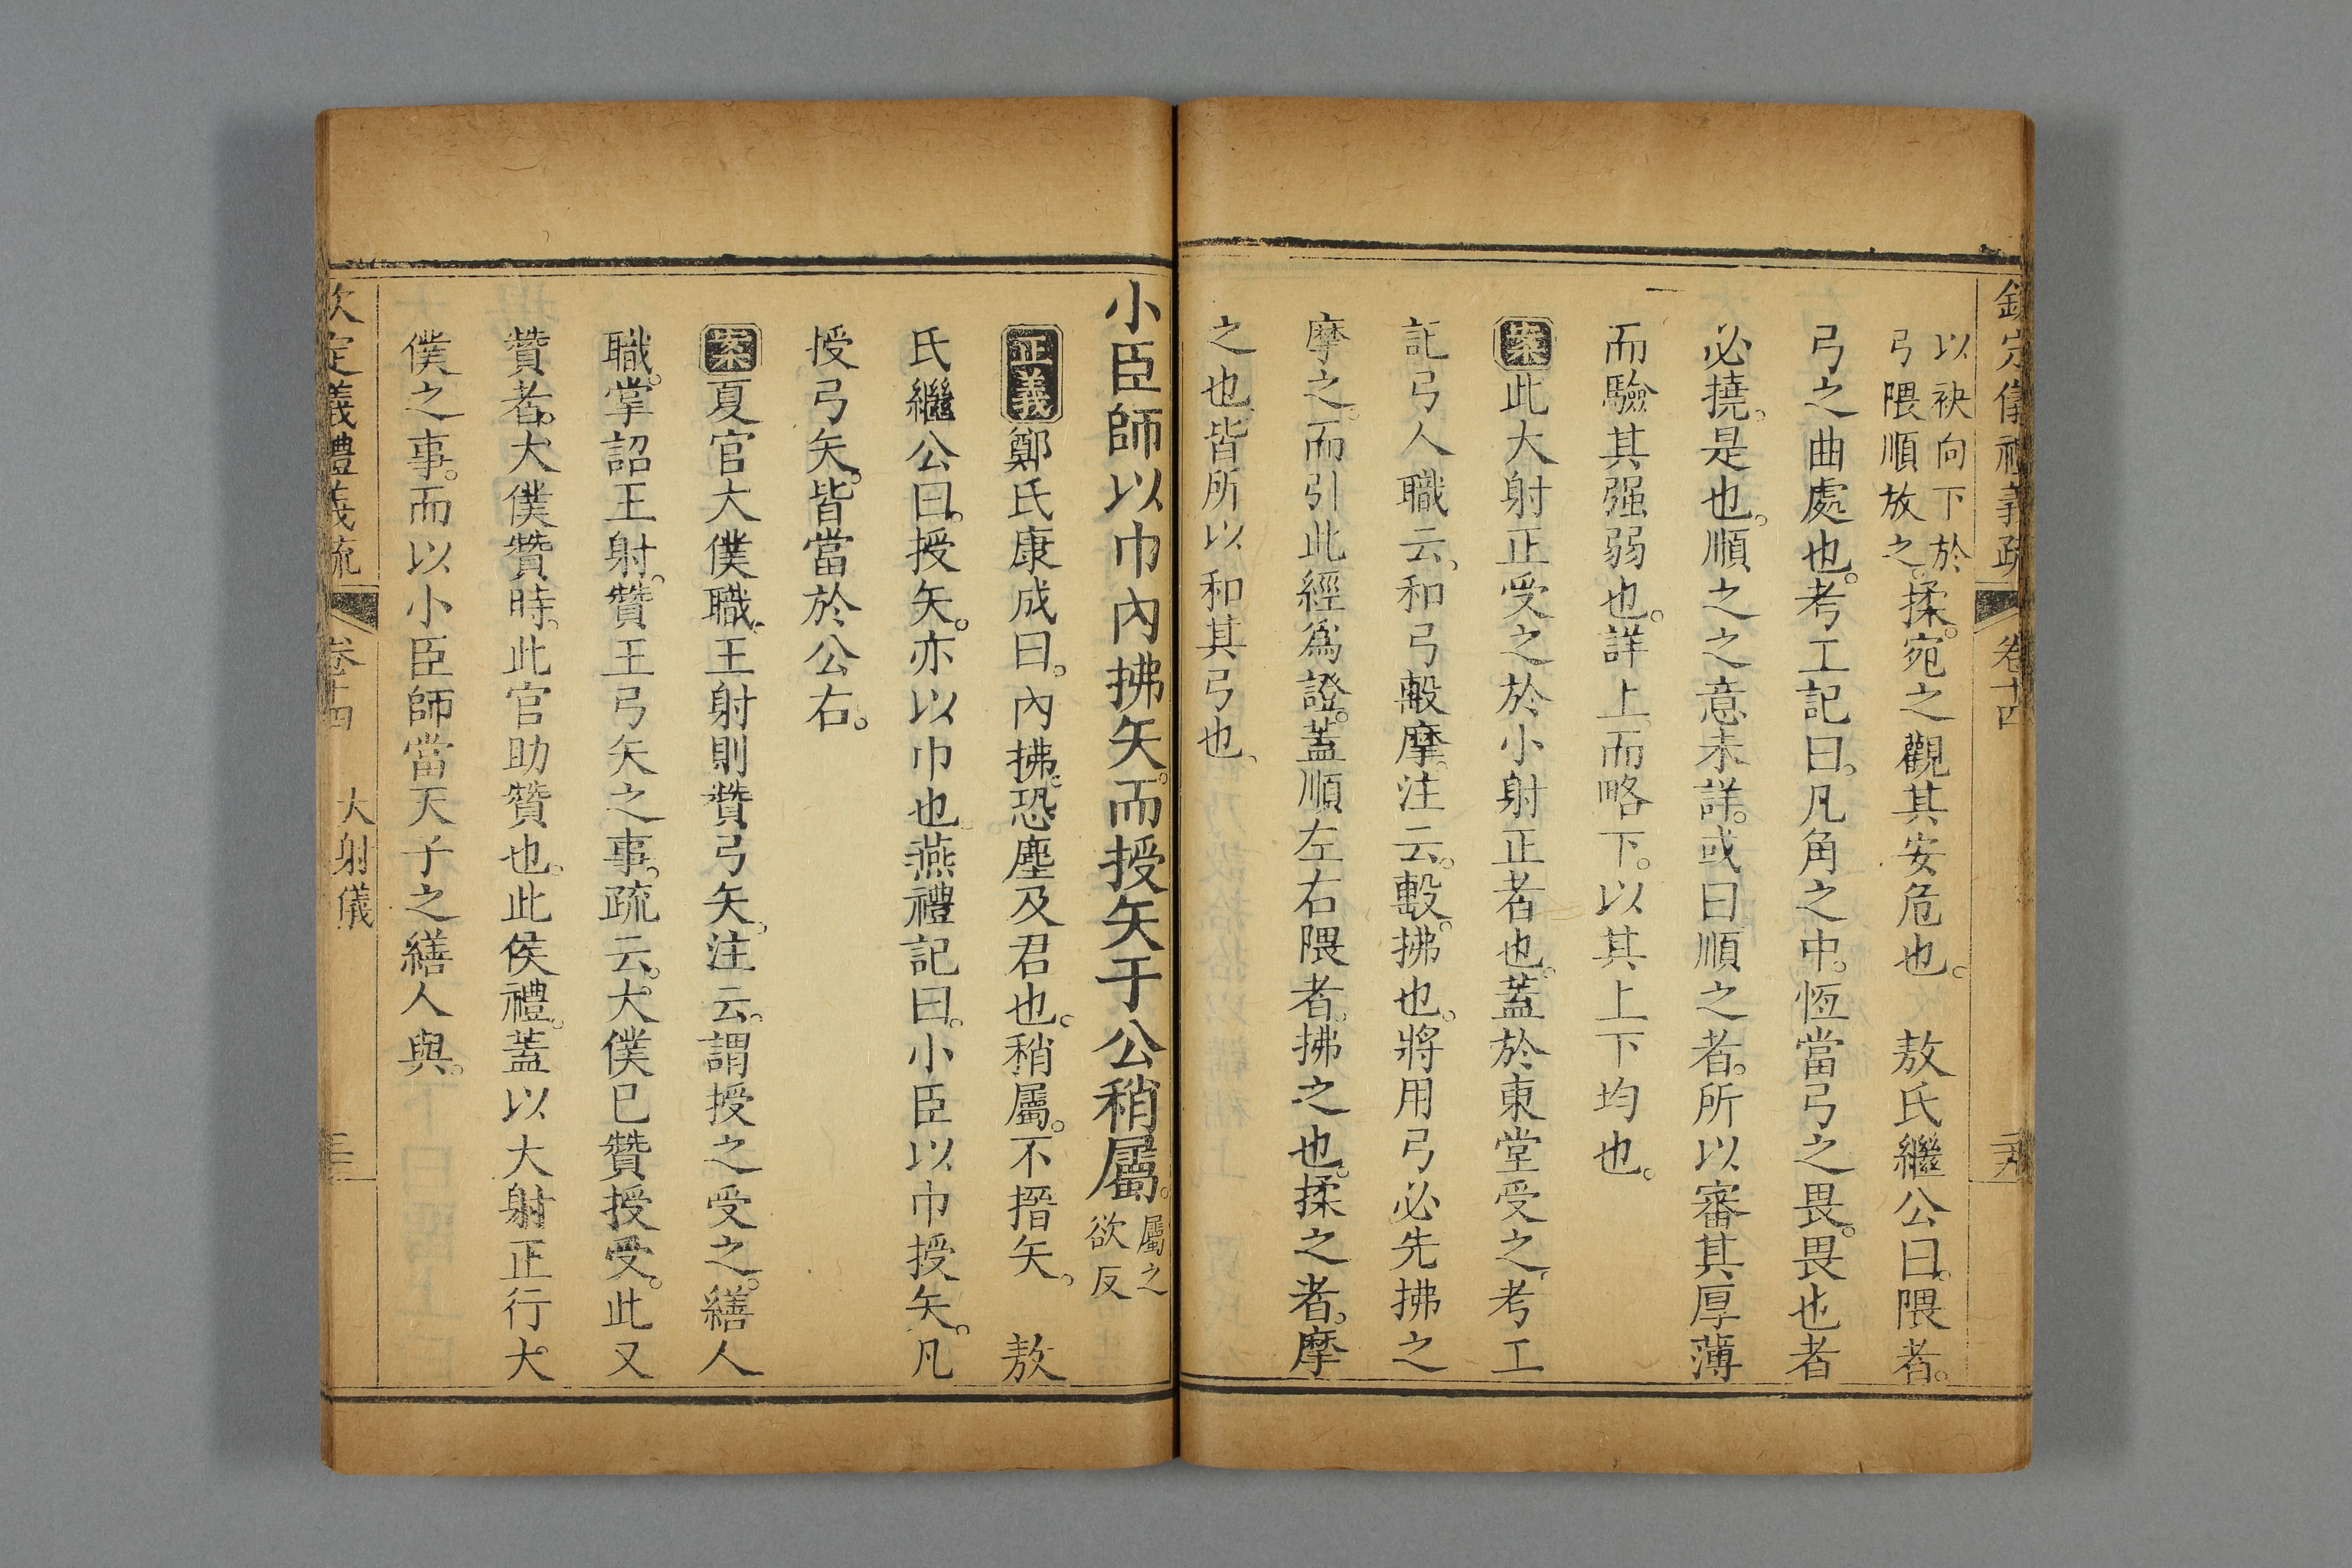 欽定儀禮義疏 卷十四 二十九
以袂向下於弓隈順放之。揉。宛之觀其安危也。 敖氏繼公曰。隈者。
弓之曲處也。考工記曰。凡角之中。恆當弓之畏。畏也者
必撓。是也。順之之意未詳。或曰順之者。所以審其厚薄
而驗其强弱也。詳上而略下。以其上下均也。
案此大射正受之於小射正者也。蓋於東堂受之、考工
記弓人職云、和弓毄摩。注云。毄。拂也。將用弓必先拂之
摩之。而引此經爲證。蓋順左右隈者。拂之也。揉之者。摩
之也。皆所以和其弓也、
小臣師以巾內拂矢。而授矢于公稍屬。屬之欲反
正義鄭氏康成曰。內拂。恐塵及君也。稍屬。不搢矢。 敖
氏繼公曰。授矢。亦以巾也。燕禮記曰。小臣以巾授矢。凡
授弓矢。皆當於公右。
案夏官大僕職、王射則贊弓矢。注云。謂授之受之。繕人
職。掌詔王射。贊王弓矢之事。疏云。大僕已贊授受。此又
贊者。大僕贊時。此官助贊也。此侯禮。蓋以大射正行大
僕之事。而以小臣師當天子之繕人與。
欽定儀禮義疏 卷十四 大射儀 三十